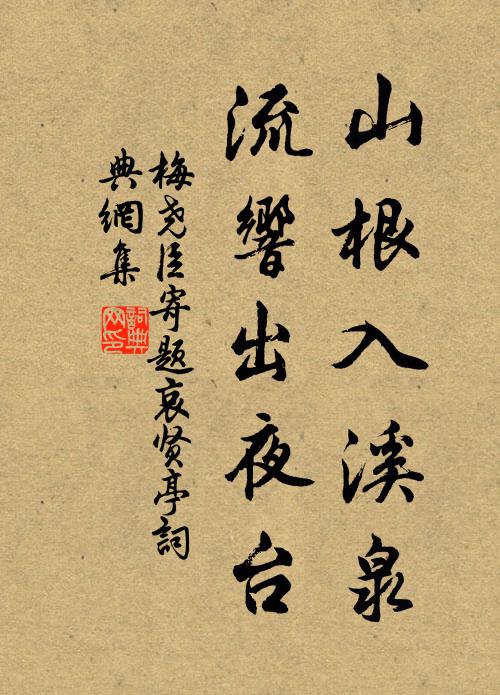 山根入溪泉
流響出夜台
梅尧臣寄题哀贤亭詞
典網集
詞典
网印